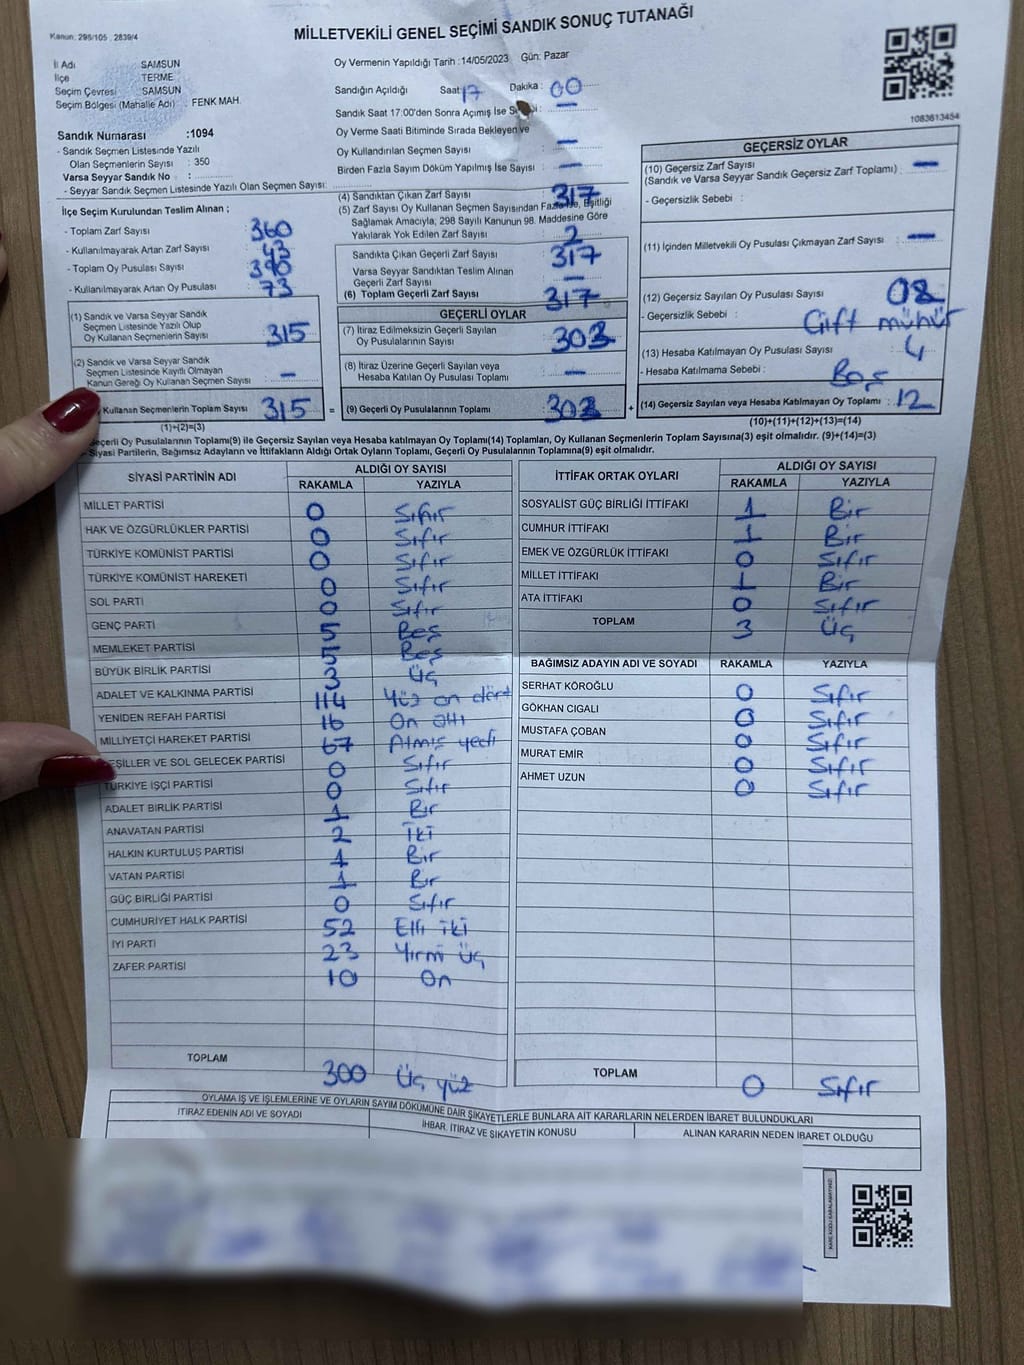 Kanun: 298/105, 2839/4
MİLLETVEKİLİ GENEL SEÇİMİ SANDIK SONUÇ TUTANAĞI
1083613454
İl Adı SAMSUN
İlçe TERME
Seçim Çevresi SAMSUN
Seçim Bölgesi (Mahalle Adı) : FENK MAH.
Sandık Numarası :1094
- Sandık Seçmen Listesinde Yazılı
Olan Seçmenlerin Sayısı : 350
Varsa Seyyar Sandık No :
- Seyyar Sandık Seçmen Listesinde Yazılı Olan Seçmen Sayısı:
İlçe Seçim Kurulundan Teslim Alınan ;
- Toplam Zarf Sayısı 360
- Kullanılmayarak Artan Zarf Sayısı 43
- Toplam Oy Pusulası Sayısı 390
- Kullanılmayarak Artan Oy Pusulası 73
(1) Sandık ve Varsa Seyyar Sandık
Seçmen Listesinde Yazılı Olup
Oy Kullanan Seçmenlerin Sayısı 315
(2) Sandık ve Varsa Seyyar Sandık
Seçmen Listesinde Kayıtlı Olmayan
Kanun Gereği Oy Kullanan Seçmen Sayısı –
Kullanan Seçmenlerin Toplam Sayısı 315 =
(1)+(2)=(3)
Oy Vermenin Yapıldığı Tarih :14/05/2023 Gün: Pazar
Sandığın Açıldığı Saat 17 Dakika : 00
Sandık Saat 17:00'den Sonra Açımış İse : –
Oy Verme Saati Bitiminde Sırada Bekleyen ve
Oy Kullandırılan Seçmen Sayısı –
Birden Fazla Sayım Döküm Yapılmış İse Sayısı : –
(4) Sandıktan Çıkan Zarf Sayısı : 317
(5) Zarf Sayısı Oy Kullanan Seçmen Sayısından Fazla İse, Eşitliği
Sağlamak Amacıyla, 298 Sayılı Kanunun 98. Maddesine Göre
Yakılarak Yok Edilen Zarf Sayısı : 2
Sandıkta Çıkan Geçerli Zarf Sayısı 317
Varsa Seyyar Sandıktan Teslim Alınan
Geçerli Zarf Sayısı –
(6) Toplam Geçerli Zarf Sayısı 317
GEÇERLİ OYLAR
(7) İtiraz Edilmeksizin Geçerli Sayılan
Oy Pusulalarının Sayısı : 303
(8) İtiraz Üzerine Geçerli Sayılan veya
Hesaba Katılan Oy Pusulası Toplamı : –
(9) Geçerli Oy Pusulalarının Toplamı : 303 +
GEÇERSİZ OYLAR
(10) Geçersiz Zarf Sayısı –
(Sandık ve Varsa Seyyar Sandık Geçersiz Zarf Toplamı) :
- Geçersizlik Sebebi :
(11) İçinden Milletvekili Oy Pusulası Çıkmayan Zarf Sayısı : –
(12) Geçersiz Sayılan Oy Pusulası Sayısı : 08
- Geçersizlik Sebebi : Çift mühür
(13) Hesaba Katılmayan Oy Pusulası Sayısı : 4
- Hesaba Katılmama Sebebi : Boş
(14) Geçersiz Sayılan veya Hesaba Katılmayan Oy Toplamı : 12
(10)+(11)+(12)+(13)=(14)
Geçerli Oy Pusulalarının Toplamı(9) ile Geçersiz Sayılan veya Hesaba katılmayan Oy Toplamı(14) Toplamları, Oy Kullanan Seçmenlerin Toplam Sayısına(3) eşit olmalıdır. (9)+(14)=(3)
- Siyasi Partilerin, Bağımsız Adayların ve İttifakların Aldığı Ortak Oyların Toplamı, Geçerli Oy Pusulalarının Toplamına(9) eşit olmalıdır.
SİYASİ PARTİNİN ADI ALDIĞI OY SAYISI
RAKAMLA YAZIYLA
MİLLET PARTİSİ 0 Sıfır
HAK VE ÖZGÜRLÜKLER PARTİSİ 0 Sıfır
TÜRKİYE KOMÜNİST PARTİSİ 0 Sıfır
TÜRKİYE KOMÜNİST HAREKETİ 0 Sıfır
SOL PARTİ 0 Sıfır
GENÇ PARTİ 5 Beş
MEMLEKET PARTİSİ 5 Beş
BÜYÜK BİRLİK PARTİSİ 3 Üç
ADALET VE KALKINMA PARTİSİ 114 Yüz on dört
YENİDEN REFAH PARTİSİ 16 On altı
MİLLİYETÇİ HAREKET PARTİSİ 67 Atmış yedi
EŞİLLER VE SOL GELECEK PARTİSİ 0 Sıfır
TÜRKİYE İŞÇİ PARTİSİ 0 Sıfır
ADALET BİRLİK PARTİSİ 1 Bir
ANAVATAN PARTİSİ 2 İki
HALKIN KURTULUŞ PARTİSİ 1 Bir
VATAN PARTİSİ 1 Bır
GÜÇ BİRLİĞİ PARTİSİ 0 Sıfır
CUMHURİYET HALK PARTİSİ 52 Elli iki
İYİ PARTİ 23 Yirmi üç
ZAFER PARTİSİ 10 On
TOPLAM 300 Üç yüz
İTTİFAK ORTAK OYLARI ALDIĞI OY SAYISI
RAKAMLA YAZIYLA
SOSYALİST GÜÇ BİRLİĞİ İTTİFAKI 1 Bir
CUMHUR İTTİFAKI 1 Bir
EMEK VE ÖZGÜRLÜK İTTİFAKI 0 Sıfır
MİLLET İTTİFAKI 1 Bir
ATA İTTİFAKI 0 Sıfır
TOPLAM 3 Üç
BAĞIMSIZ ADAYIN ADI VE SOYADI RAKAMLA YAZIYLA
SERHAT KÖROĞLU 0 Sıfır
GÖKHAN CIGALI 0 Sıfır
MUSTAFA ÇOBAN 0 Sıfır
MURAT EMİR 0 Sıfır
AHMET UZUN 0 Sıfır
TOPLAM 0 Sıfır
OYLAMA İŞ VE İŞLEMLERİNE VE OYLARIN SAYIM DÖKÜMÜNE DAİR ŞİKAYETLERLE BUNLARA AİT KARARLARIN NELERDEN İBARET BULUNDUKLARI
İTİRAZ EDENİN ADI VE SOYADI İHBAR, İTİRAZ VE ŞİKAYETİN KONUSU ALINAN KARARIN NEDEN İBARET OLDUĞU
KARE KODU KARALAMAYINIZ!